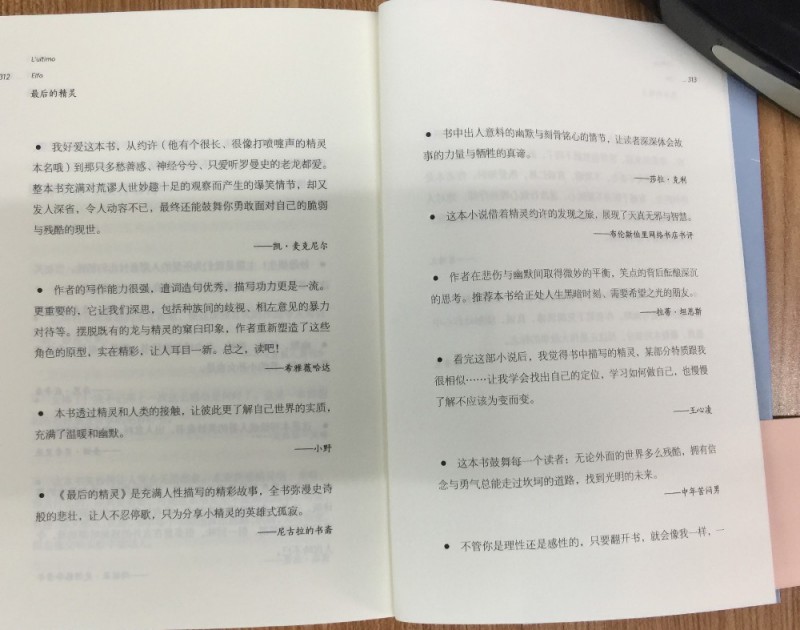 L'ultimo
312
Elfo
最后的精灵
● 我好爱这本书，从约许（他有个很长、很像打喷嚏声的精灵
本名哦）到那只多愁善感、神经兮兮、只爱听罗曼史的老龙都爱。
整本书充满对荒谬人世妙趣十足的观察而产生的爆笑情节，却又
发人深省，令人动容不已，最终还能鼓舞你勇敢面对自己的脆弱
与残酷的现世。
——凯·麦克尼尔
● 作者的写作能力很强，遣词造句优秀，描写功力更是一流。
更重要的，它让我们深思，包括种族间的歧视、相左意见的暴力
对待等。摆脱既有的龙与精灵的窠臼印象，作者重新塑造了这些
角色的原型，实在精彩，让人耳目一新。总之，读吧！
——希雅薇哈达
● 本书透过精灵和人类的接触，让彼此更了解自己世界的实质，
充满了温暖和幽默。
——小野
● 《最后的精灵》是充满人性描写的精彩故事，全书弥漫史诗
般的悲壮，让人不忍停歇，只为分享小精灵的英雄式孤寂。
——尼古拉的书斋
313
● 书中出人意料的幽默与刻骨铭心的情节，让读者深深体会故
事的力量与牺牲的真谛。
——莎拉·克利
● 这本小说借着精灵约许的发现之旅，展现了天真无邪与智慧。
——布伦斯伯里网络书店书评
● 作者在悲伤与幽默间取得微妙的平衡，笑点的背后酝酿深沉
的思考。推荐本书给正处人生黑暗时刻、需要希望之光的朋友。
——拉蒂·坦恩斯
● 看完这部小说后，我觉得书中描写的精灵，某部分特质跟我
很相似……让我学会找出自己的定位，学习如何做自己，也慢慢
了解不应该为变而变。
——王心凌
● 这本书鼓舞每一个读者：无论外面的世界多么残酷，拥有信
念与勇气总能走过坎坷的道路，找到光明的未来。
——中年苦闷男
● 不管你是理性还是感性的，只要翻开书，就会像我一样，一